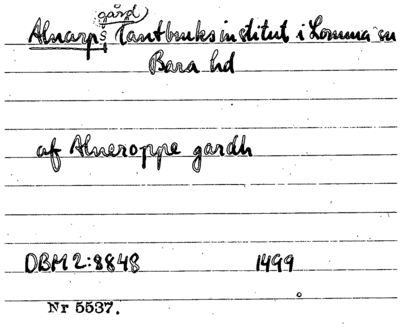 gård
Alnarps, Lantbruksinstitut i Lomma sn
Bara hd
af Alneroppe gardh
DBM 2:8848 1499
Nr 5537.